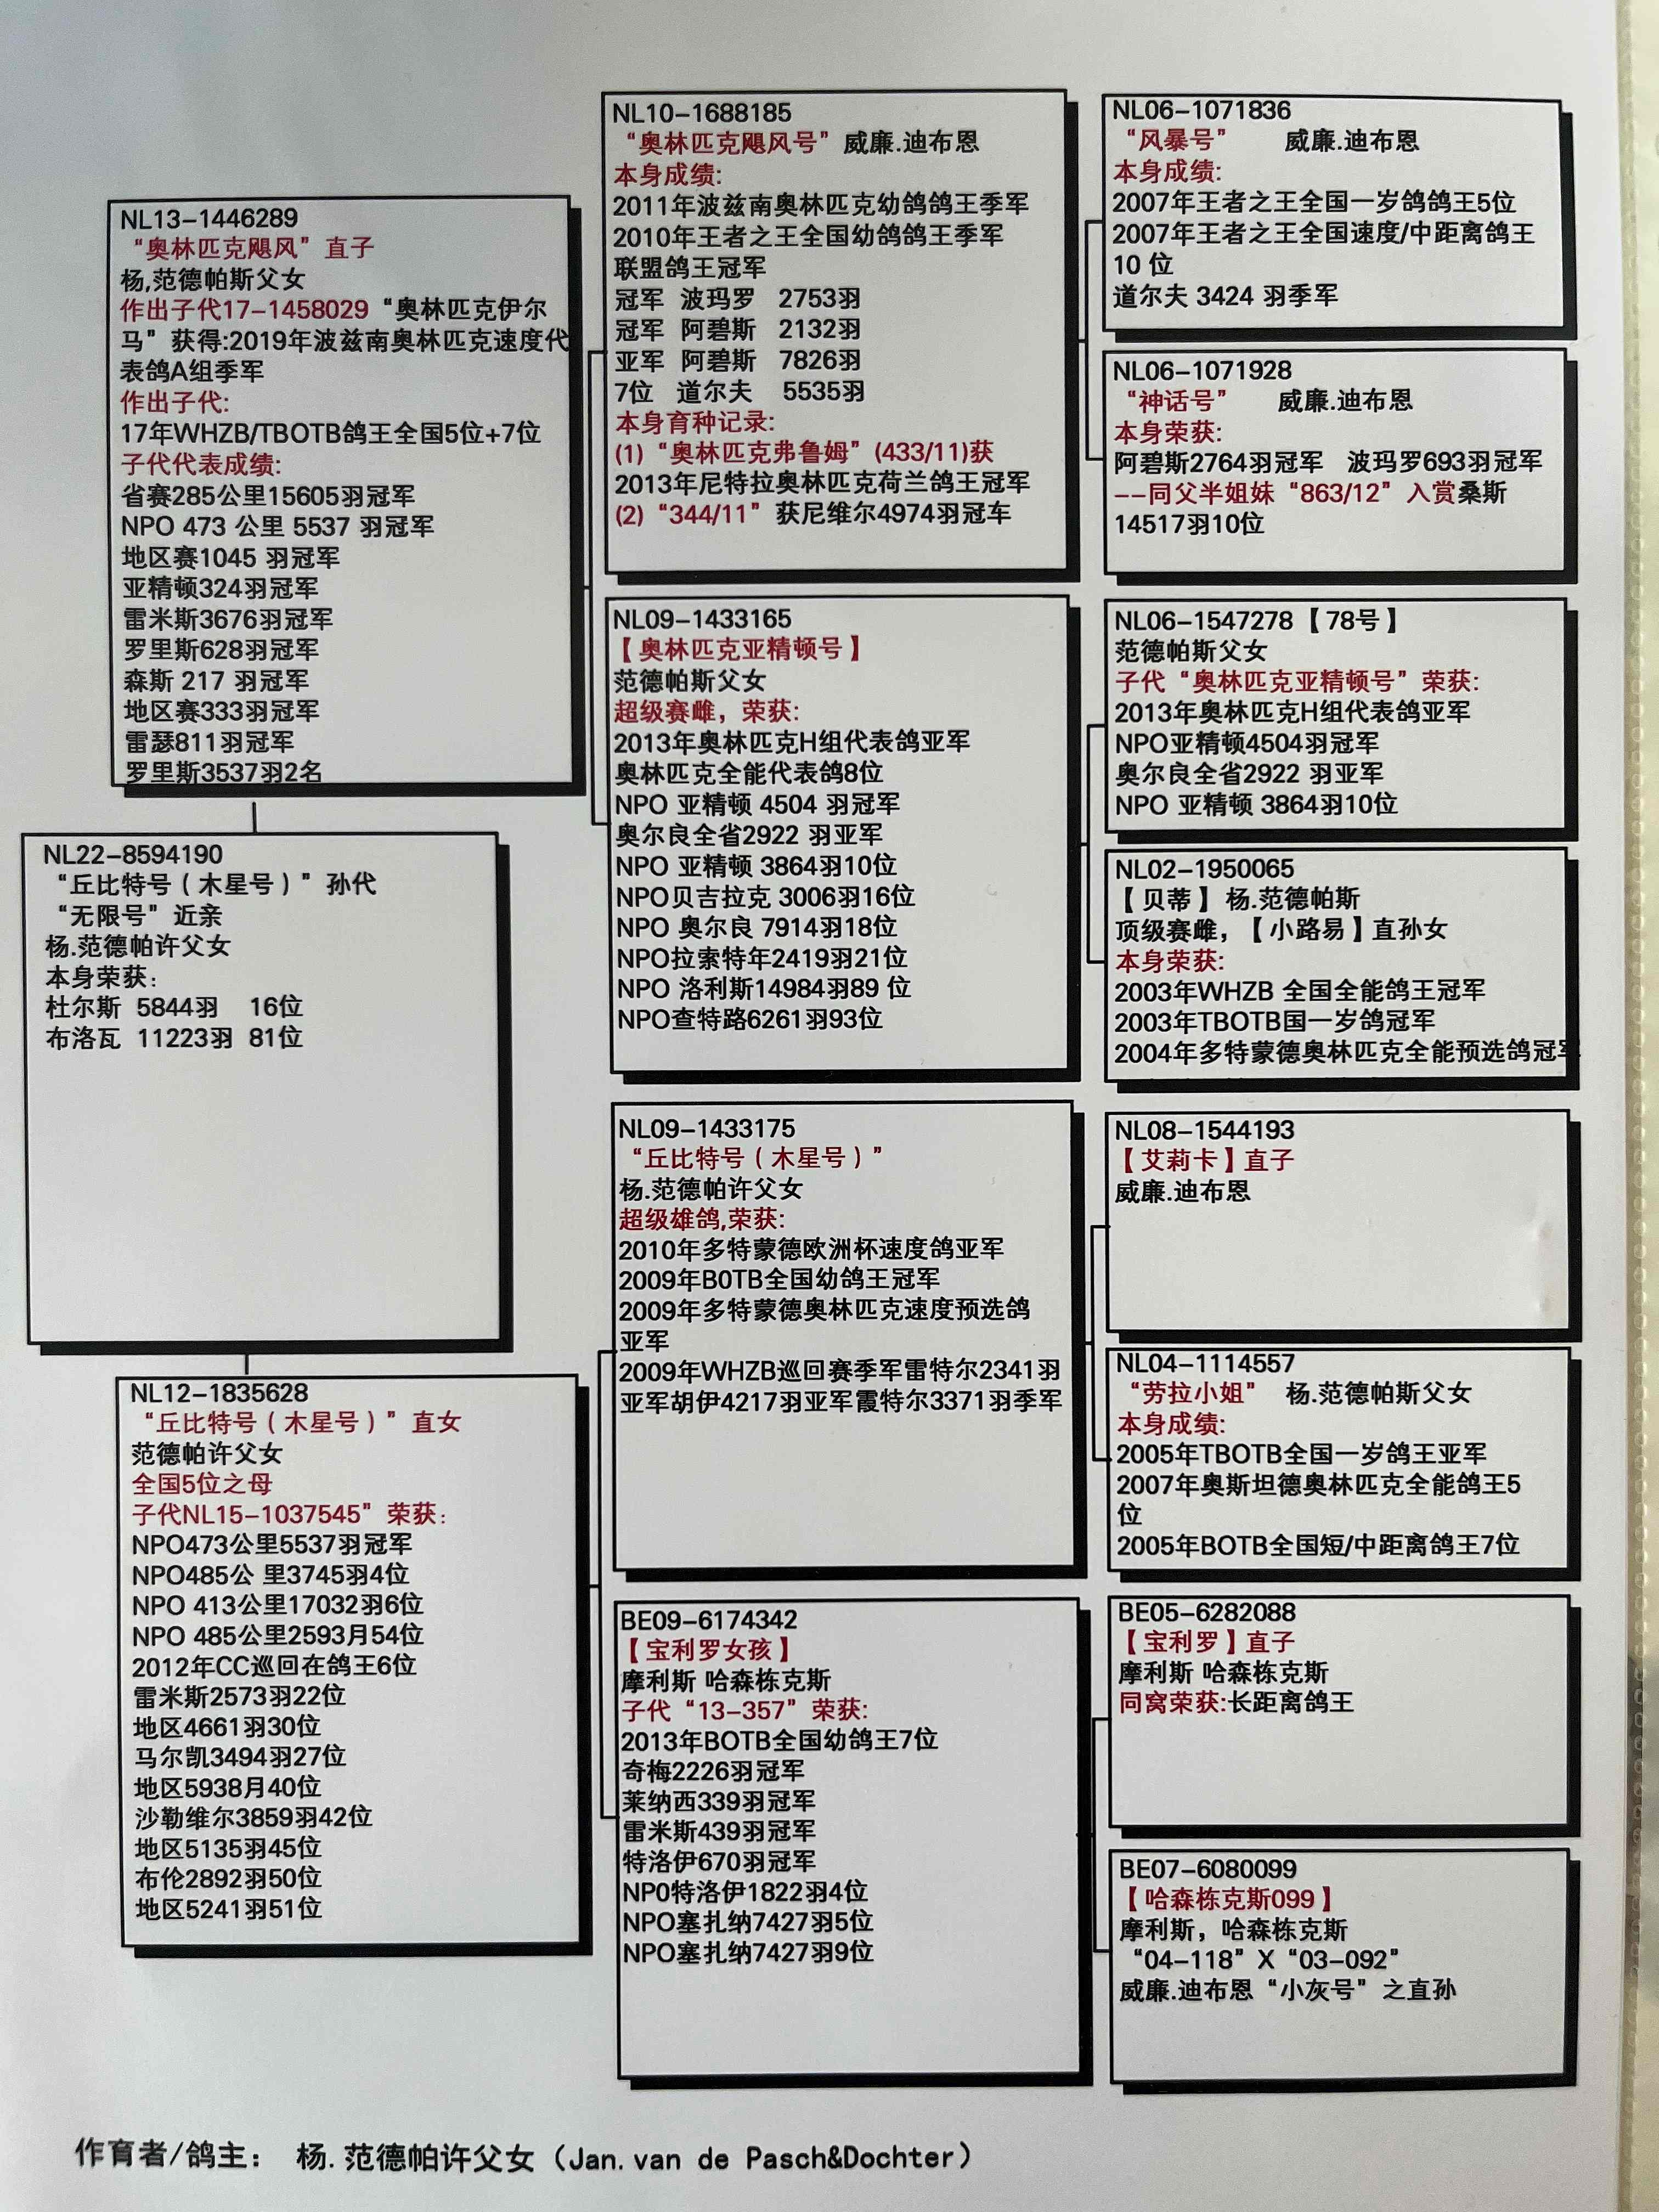 NL13-1446289
“奥林匹克飓风”直子
杨,范德帕斯父女
作出子代17-1458029“奥林匹克伊尔
马”获得:2019年波兹南奥林匹克速度代
表鸽A组季军
作出子代:
17年WHZB/TBOTB鸽王全国5位+7位
子代代表成绩:
省赛285公里15605羽冠军
NPO 473 公里 5537 羽冠军
地区赛1045 羽冠军
亚精顿324羽冠军
雷米斯3676羽冠军
罗里斯628羽冠军
森斯 217 羽冠军
地区赛333羽冠军
雷瑟811羽冠军
罗里斯3537羽2名
NL22-8594190
“丘比特号(木星号)”孙代
“无限号”近亲
杨.范德帕许父女
本身荣获:
杜尔斯 5844羽 16位
布洛瓦 11223羽 81位
NL12-1835628
“丘比特号(木星号)”直女
范德帕许父女
全国5位之母
子代NL15-1037545”荣获:
NPO473公里5537羽冠军
NPO485公 里3745羽4位
NPO 413公里17032羽6位
NPO 485公里2593月54位
2012年CC巡回在鸽王6位
雷米斯2573羽22位
地区4661羽30位
马尔凯3494羽27位
地区5938月40位
沙勒维尔3859羽42位
地区5135羽45位
布伦2892羽50位
地区5241羽51位
NL10-1688185
“奥林匹克飓风号”威廉.迪布恩
本身成绩:
2011年波兹南奥林匹克幼鸽鸽王季军
2010年王者之王全国幼鸽鸽王季军
联盟鸽王冠军
冠军 波玛罗 2753羽
冠军 阿碧斯 2132羽
亚军 阿碧斯 7826羽
7位 道尔夫 5535羽
本身育种记录:
(1)“奥林匹克弗鲁姆”(433/11)获
2013年尼特拉奥林匹克荷兰鸽王冠军
(2)“344/11”获尼维尔4974羽冠车
NL09-1433165
【奥林匹克亚精顿号】
范德帕斯父女
超级赛雌，荣获:
2013年奥林匹克H组代表鸽亚军
奥林匹克全能代表鸽8位
NPO 亚精顿 4504 羽冠军
奥尔良全省2922 羽亚军
NPO 亚精顿 3864羽10位
NPO贝吉拉克 3006羽16位
NPO 奥尔良 7914羽18位
NPO拉索特年2419羽21位
NPO 洛利斯14984羽89 位
NPO查特路6261羽93位
NL09-1433175
“丘比特号(木星号)”
杨.范德帕许父女
超级雄鸽,荣获:
2010年多特蒙德欧洲杯速度鸽亚军
2009年B0TB全国幼鸽王冠军
2009年多特蒙德奥林匹克速度预选鸽
亚军
2009年WHZB巡回赛季军雷特尔2341羽
亚军胡伊4217羽亚军霞特尔3371羽季军
BE09-6174342
【宝利罗女孩】
摩利斯 哈森栋克斯
子代“13-357”荣获:
2013年BOTB全国幼鸽王7位
奇梅2226羽冠军
莱纳西339羽冠军
雷米斯439羽冠军
特洛伊670羽冠军
NP0特洛伊1822羽4位
NPO塞扎纳7427羽5位
NPO塞扎纳7427羽9位
NL06-1071836
“风暴号” 威廉.迪布恩
本身成绩:
2007年王者之王全国一岁鸽鸽王5位
2007年王者之王全国速度/中距离鸽王
10 位
道尔夫 3424 羽季军
NL06-1071928
“神话号” 威廉.迪布恩
本身荣获:
阿碧斯2764羽冠军 波玛罗693羽冠军
--同父半姐妹“863/12”入赏桑斯
14517羽10位
NL06-1547278【78号】
范德帕斯父女
子代“奥林匹克亚精顿号”荣获:
2013年奥林匹克H组代表鸽亚军
NPO亚精顿4504羽冠军
奥尔良全省2922 羽亚军
NPO 亚精顿 3864羽10位
NL02-1950065
【贝蒂】杨.范德帕斯
顶级赛雌，【小路易】直孙女
本身荣获:
2003年WHZB 全国全能鸽王冠军
2003年TBOTB国一岁鸽冠军
2004年多特蒙德奥林匹克全能预选鸽冠军
NL08-1544193
【艾莉卡】直子
威廉.迪布恩
NL04-1114557
“劳拉小姐” 杨.范德帕斯父女
本身成绩:
2005年TBOTB全国一岁鸽王亚军
2007年奥斯坦德奥林匹克全能鸽王5
位
2005年BOTB全国短/中距离鸽王7位
BE05-6282088
【宝利罗】直子
摩利斯 哈森栋克斯
同窝荣获:长距离鸽王
BE07-6080099
【哈森栋克斯099】
摩利斯，哈森栋克斯
“04-118”X“03-092”
威廉.迪布恩“小灰号”之直孙
作育者/鸽主： 杨.范德帕许父女（Jan.van de Pasch&Dochter）